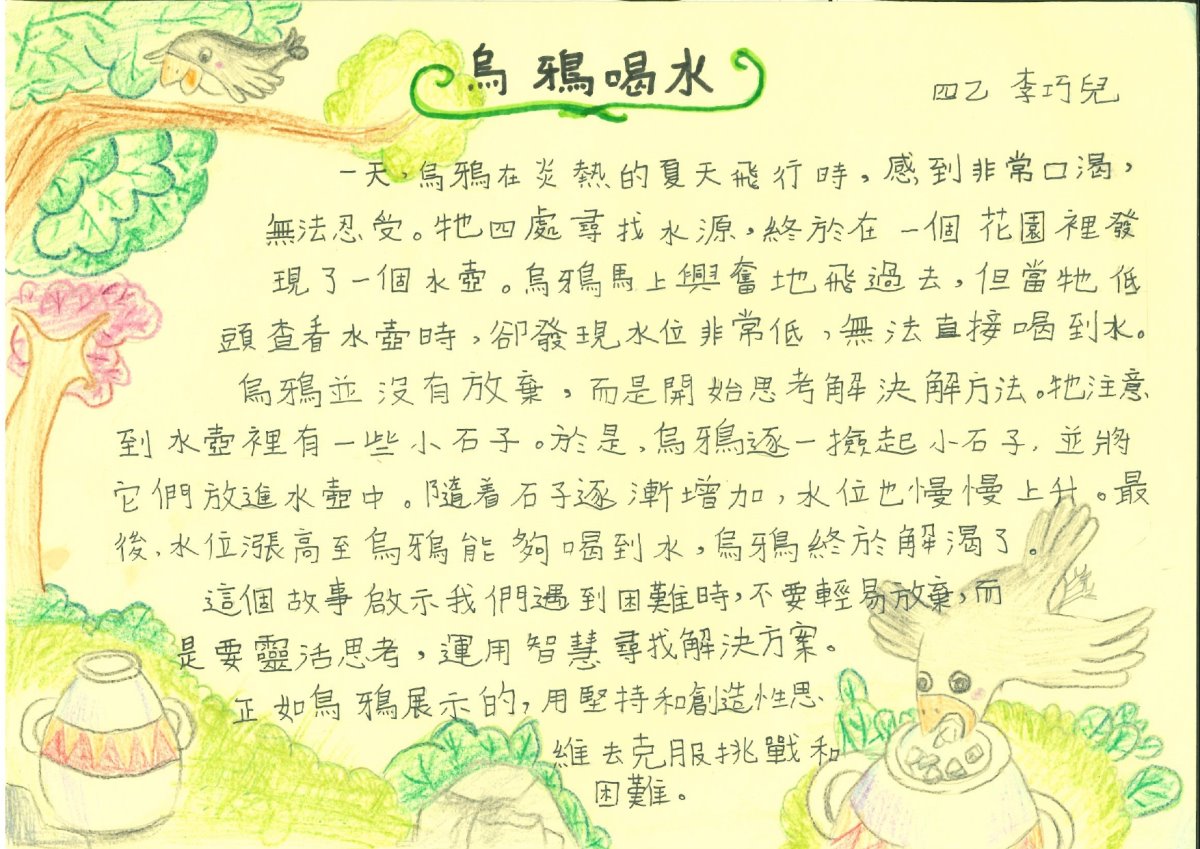 烏鴉喝水
四乙 李巧兒
一天，烏鴉在炎熱的夏天飛行時，感到非常口渴，
無法忍受。牠四處尋找水源，終於在一個花園裡發
現了一個水壺。烏鴉馬上興奮地飛過去，但當牠低
頭查看水壺時，卻發現水位非常低，無法直接喝到水。
烏鴉並沒有放棄，而是開始思考解決解方法。牠注意
到水壺裡有一些小石子。於是，烏鴉逐一撿起小石子，並將
它們放進水壺中。隨着石子逐漸增加，水位也慢慢上升。最
後，水位漲高至烏鴉能夠喝到水，烏鴉終於解渴了。
這個故事啟示我們遇到困難時，不要輕易放棄，而
是要靈活思考，運用智慧尋找解決方案。
正如烏鴉展示的，用堅持和創造性思
維去克服挑戰和
困難。